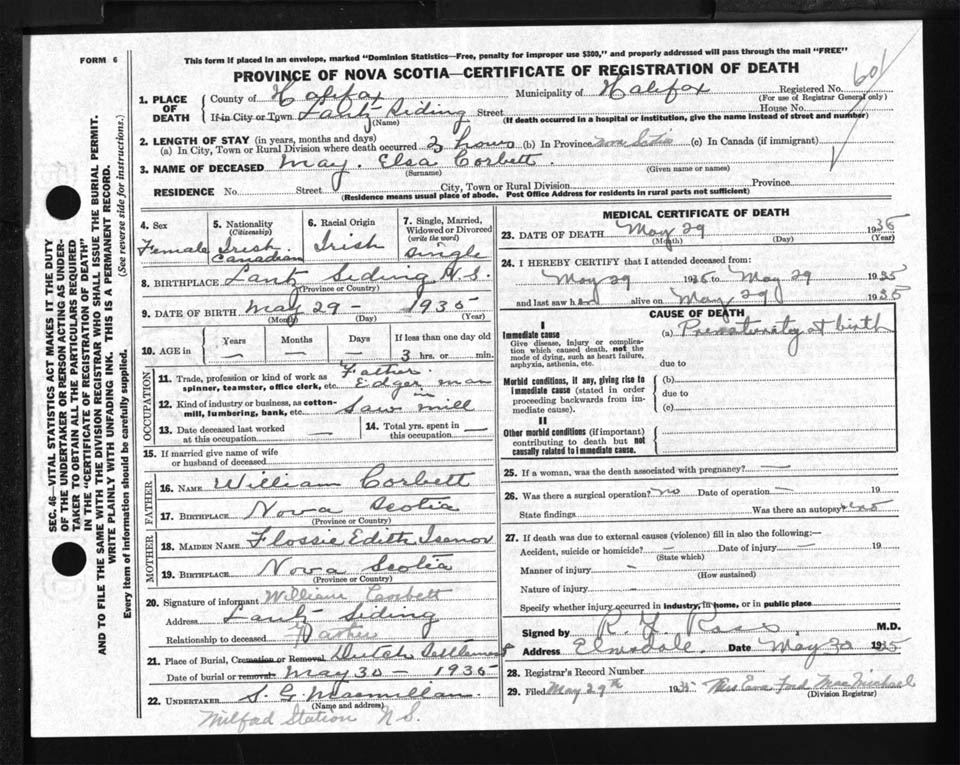 FORM 6
This form if placed in an envelope, marked "Dominion Statistics—Free, penalty for improper use $300," and properly addressed will pass through the mail "FREE"
PROVINCE OF NOVA SCOTIA—CERTIFICATE OF REGISTRATION OF DEATH
601
1. PLACE OF DEATH
County of Halifax Municipality of Halifax Registered No.
(For use of Registrar General only)
If in City or Town Lantz Siding Street House No.
(Name) (If death occurred in a hospital or institution, give the name instead of street and number)
2. LENGTH OF STAY (in years, months and days)
(a) In City, Town or Rural Division where death occurred 3 hours (b) In Province Nova Scotia (c) In Canada (if immigrant)
3. NAME OF DECEASED May. Elsa Corbett.
(Surname) (Given name or names)
RESIDENCE No. Street City, Town or Rural Division Province
(Residence means usual place of abode. Post Office Address for residents in rural parts not sufficient)
SEC. 46—VITAL STATISTICS ACT MAKES IT THE DUTY
OF THE UNDERTAKER OR PERSON ACTING AS UNDER-
TAKER TO OBTAIN ALL THE PARTICULARS REQUIRED
IN THE "CERTIFICATE OF REGISTRATION OF DEATH"
AND TO FILE THE SAME WITH THE DIVISION REGISTRAR WHO SHALL ISSUE THE BURIAL PERMIT.
WRITE PLAINLY WITH UNFADING INK. THIS IS A PERMANENT RECORD.
Every item of information should be carefully supplied. (See reverse side for instructions.)
4. Sex
Female
5. Nationality
(Citizenship)
Irish.
Canadian
6. Racial Origin
Irish
7. Single, Married,
Widowed or Divorced
(write the word)
Single
8. BIRTHPLACE Lantz Siding N.S.
(Province or Country)
9. DATE OF BIRTH May 29 - 1935
(Month) (Day) (Year)
10. AGE in
Years Months Days If less than one day old
— — — 3 hrs. or min.
OCCUPATION
11. Trade, profession or kind of work as Father.
spinner, teamster, office clerk, etc. Edger man
in
12. Kind of industry or business, as cotton-
mill, lumbering, bank, etc. Saw mill
13. Date deceased last worked
at this occupation —
14. Total yrs. spent in
this occupation —
15. If married give name of wife
or husband of deceased
FATHER
16. NAME William Corbett
17. BIRTHPLACE Nova Scotia
(Province or Country)
MOTHER
18. MAIDEN NAME Flossie Edith Isenor
19. BIRTHPLACE Nova Scotia
(Province or Country)
20. Signature of informant William Corbett
Address Lantz Siding
Relationship to deceased Father
21. Place of Burial, Cremation or Removal Dutch Settlement
Date of burial or removal May 30 1935
22. UNDERTAKER S. G. Macmillan.
(Name and address)
Milford Station N S.
MEDICAL CERTIFICATE OF DEATH
23. DATE OF DEATH May 29 1935
(Month) (Day) (Year)
24. I HEREBY CERTIFY that I attended deceased from:
May 29 1935 to May 29 1935
and last saw her alive on May 29 1935
CAUSE OF DEATH
I
Immediate cause (a) Prematurity at birth
Give disease, injury or complica-
tion which caused death, not the
mode of dying, such as heart failure,
asphyxia, asthenia, etc.
due to
Morbid conditions, if any, giving rise to
immediate cause (stated in order
proceeding backwards from im-
mediate cause).
(b)
due to
(c)
II
Other morbid conditions (if important)
contributing to death but not
causally related to immediate cause.
25. If a woman, was the death associated with pregnancy? —
26. Was there a surgical operation? no Date of operation — 19
State findings Was there an autopsy? no
27. If death was due to external causes (violence) fill in also the following:—
Accident, suicide or homicide? — Date of injury — 19
(State which)
Manner of injury -
(How sustained)
Nature of injury -
Specify whether injury occurred in industry, in home, or in public place
Signed by Ross. M.D.
Address Elmsdale. Date May 30 1935
28. Registrar's Record Number
29. Filed May 29th 1935 Mrs Eva Ford MacMichael
(Division Registrar)